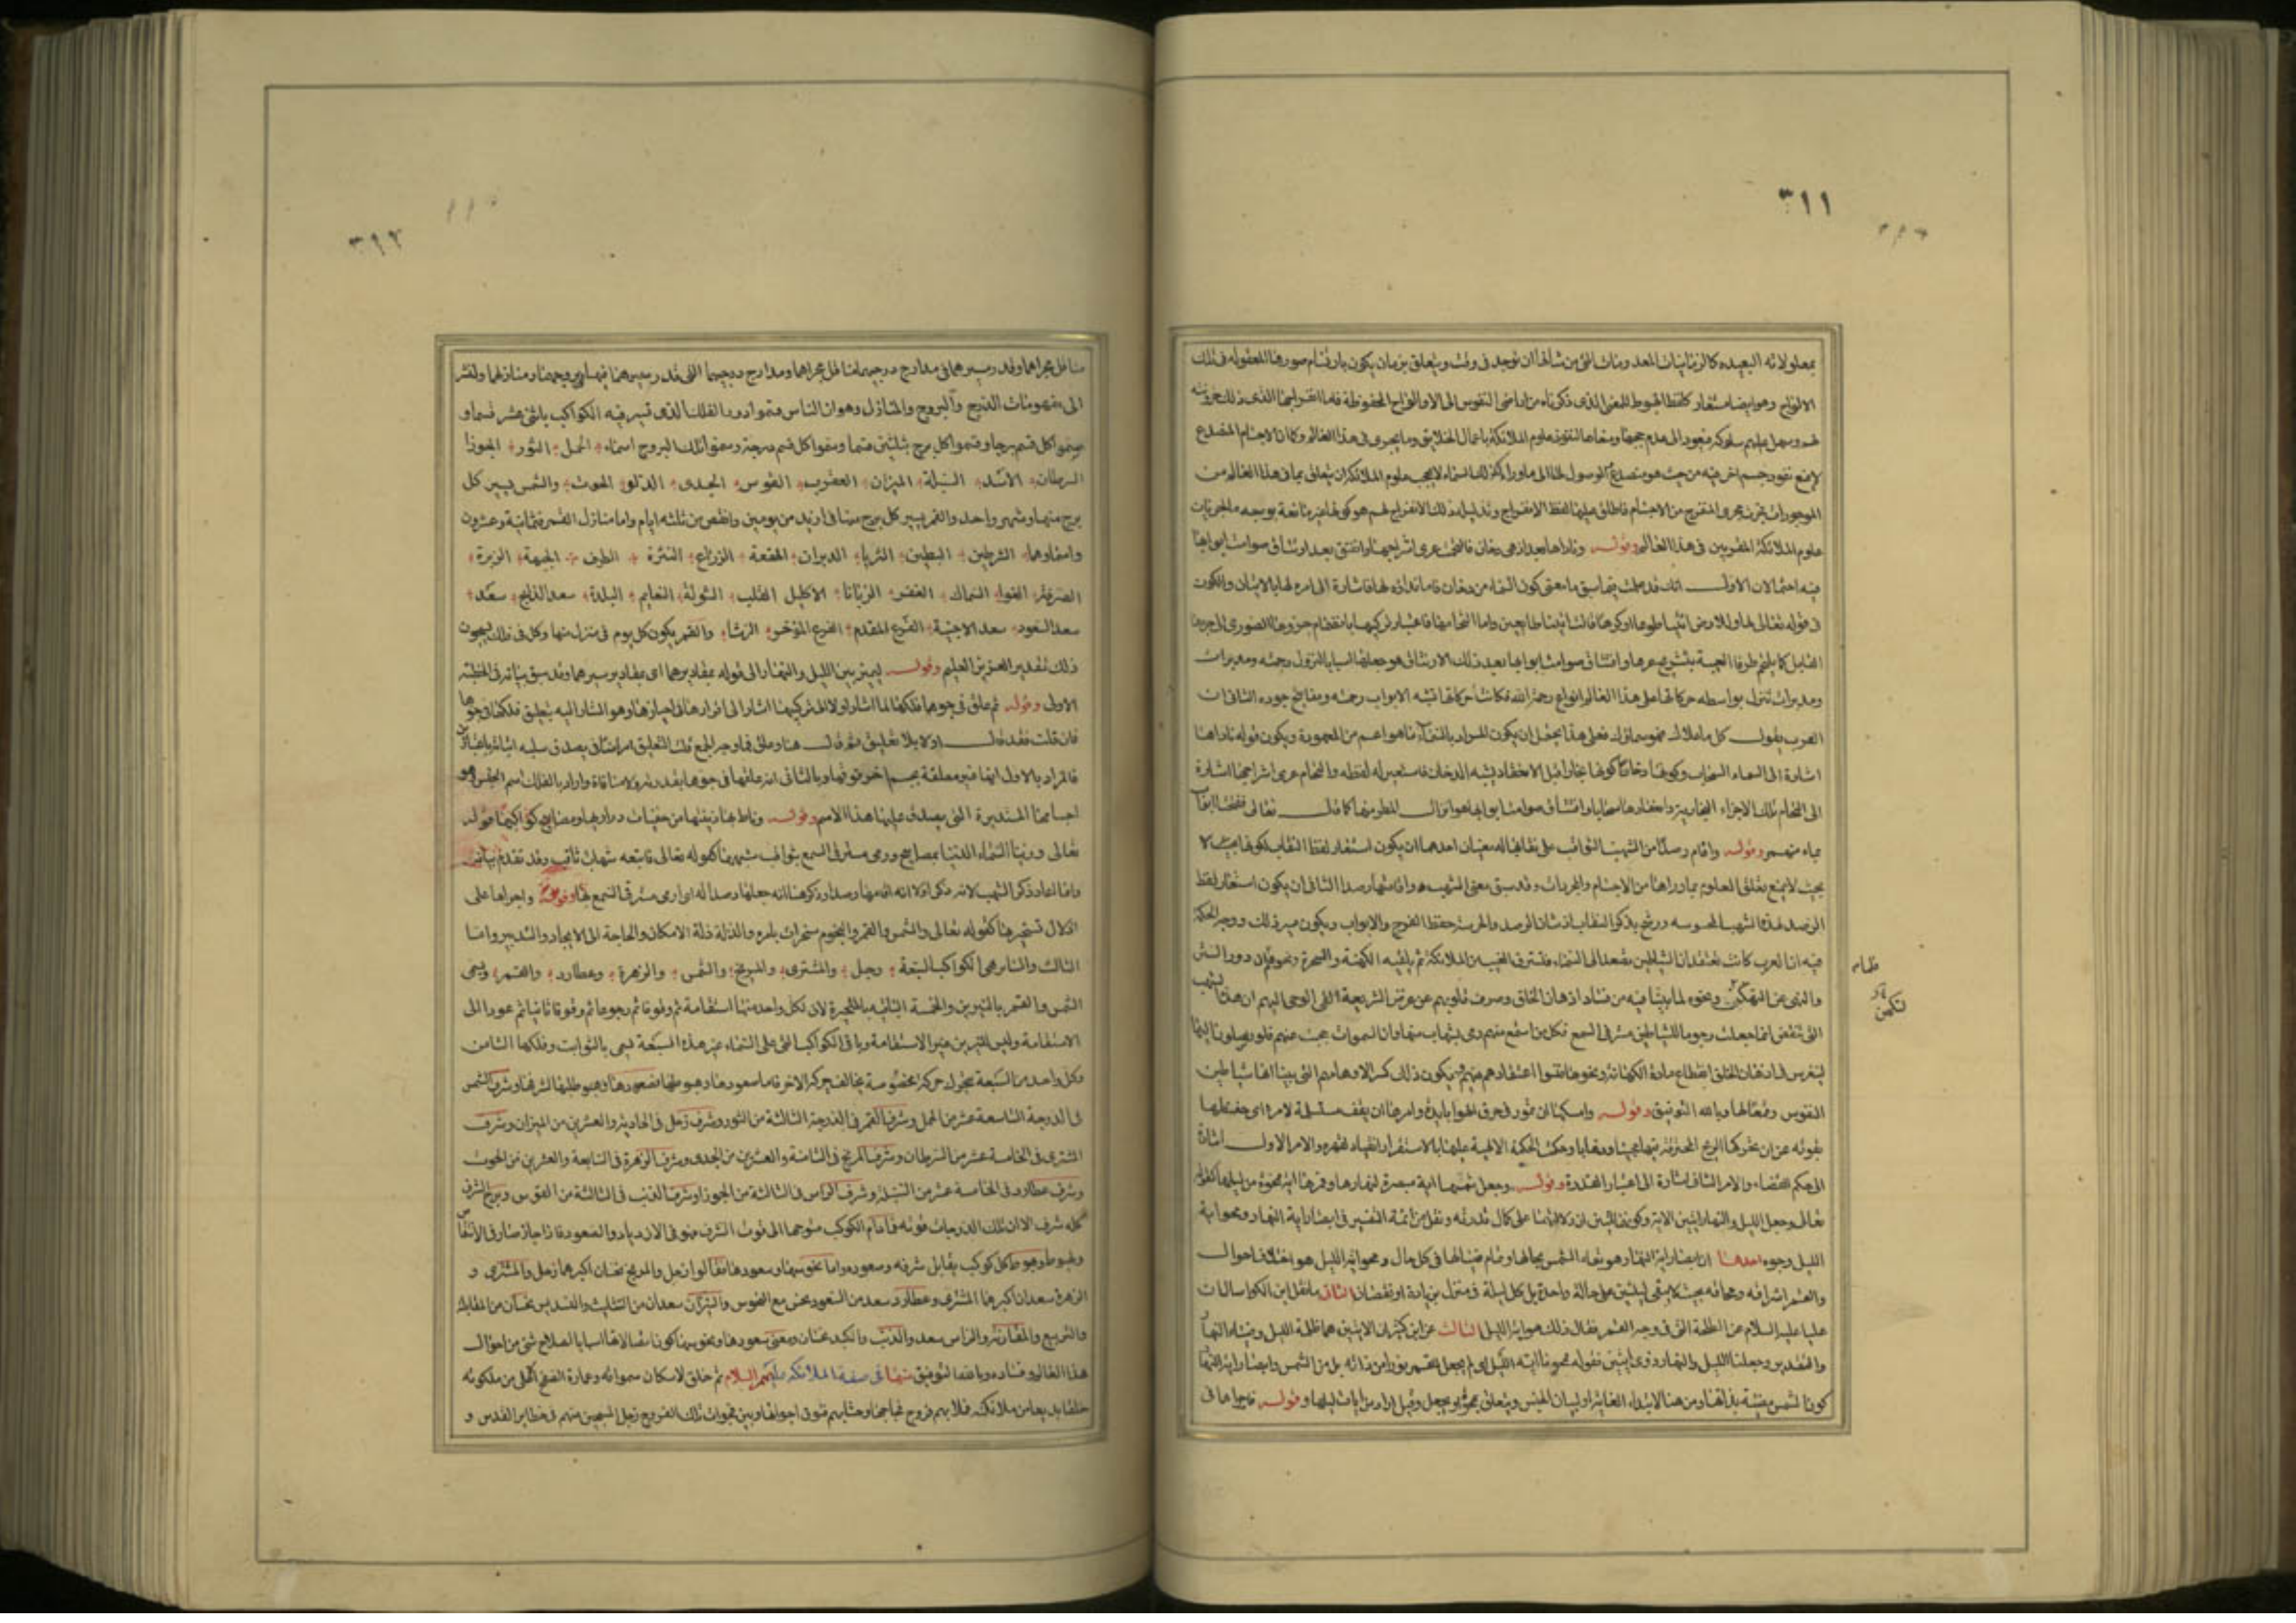 ٣١١
بمعلولاته البعيده كالزمانيات المعدومات التى من شأنها ان توجد فى وقت ويتعلق بزمان يكون بارتسام صورها المعقوله فى تلك
الالواح وهو ايضا مستعار كلفظ الهبوط للمعنى الذى ذكرناه من اراضى النفوس الى الاوالواح المحفوظة فاما انفراجها الذى ذلل حزونته
لهم وسهل عليهم سلوكه فيعود الى عدم حجبها ومنعها لنفوذ علوم الملائكة باعمال الخلايق وما يجرى فى هذا العالم وكما ان الاجسام المتصدع
لا يمنع نفوذ جسم اخر فيه من حيث هو متصدع والوصول الى ما وراءه كذلك السماء لا يحجب علوم الملائكة ان يتعلق بما فى هذا العالم من
الموجودات فجرت مجرى المنفرج من الاجسام فاطلق عليها لفظ الانفراج وتذليله لذلك الانفراج لهم هو كونها غير مانعة بوجه ما لجريات
علوم الملائكة المقربين فى هذا العالم وقوله وناداها بعد اذ هى دخان فالتحمت عرى اشراجها وافتتق بعد ارتتاق صوامت ابوابها
فيه احتمالان الاول انك قد علمت فيما سبق ما معنى كون السماء من دخان فاما نداؤه لها فاشارة الى امره لها بالاتيان والكون
فى قوله تعالى لها وللارض ائتيا طوعا او كرها قالتا اتينا طائعين واما التحامها فاعتبار تركيبها بانضمام جزوها الصورى الى جزوها
القابل كما يلتحم طرفا العيبة بتشريج عراها وافتتاق صوامت ابوابها بعد ذلك الارتتاق هو جعلها اسبابا لنزول رحمته ومدبرات
ومدبرات تنزل بواسطه حركاتها على هذا العالم انواع رحمة الله فكانت حركاتها تشبه الابواب رحمته ومفاتيح جوده الثانى ان
العرب يقول لكل ما علاك فهو سماؤك فعلى هذا يحتمل ان يكون المراد بالسماء ما هو اعم من المعهودة ويكون قوله ناداها
اشارة الى السماء السحاب وكونها دخانا كونها بخارا قبل الانعقاد يشبه الدخان فاستعير له لفظه والتحام عرى اشراجها اشارة
الى التحام تلك الاجزاء البخارية وانعقادها سحابا وافتتاق صوامت ابوابها هو انزال المطر منها كما قال تعالى ففتحنا ابواب
بماء منهمر وقوله واقام رصدا من الشهب الثواقب على نقابها له معنيان احدهما ان يكون استعار لفظ النقاب لكونها بحيث لا
بحيث لا يمنع تعلق العلوم بما وراءها من الاجسام والمجردات وقد سبق معنى الشهب واقامتها رصدا الثانى ان يكون استعار لفظ
الرصد لهذه الشهب المحسوسه ورشح بذكر النقاب اذ شان الرصد والحرسة حفظ الفرج والابواب ويكون سر ذلك ووجه الحكمة
فيه ان العرب كانت تعتقد ان الشياطين تصعد الى السماء فتسترق الغيب من الملائكة ثم تلقيه الى الكهنة والسحرة ونحوهم فلما ان دور الستر
والنهى عن التكهن ونحوه لما بينا فيه من فساد اذهان الخلق وصرف قلوبهم عن غرض الشريعة القى الوحى اليهم ان هذه الشهب
التى تنقض انما جعلت رجوما للشياطين مسترقى السمع فكل من استمع منهم رمى بشهاب منها وان السموات حجبت عنهم فلا يصلون اليها
لينغرس فى اذهان الخلق انقطاع مادة الكهانة ونحوها فينسخوا اعتقادهم فيهم ويكون ذلك كسرا لاوهامهم التى بينا انها شياطين
النفوس وقمعا لها وبالله التوفيق وقوله وامسكها ان تمور فى خرق الهواء بايده وامرها ان يقف مستسلمة لامره اى حفظها
بقوته عن ان تحركها الريح المخترقة فيها مجيئا وذهابا وحكمت الحكمة الالهية عليها بالاستقرار انقيادا لقهره والامر الاول اشارة
الى حكم القضاء والامر الثانى اشارة الى اعتبار القدرة وقوله وجعل شمسها اية مبصرة لنهارها وقمرها اية ممحوة من ليلها كقوله
تعالى وجعل الليل والنهار ايتين الاية وكونهما ايتين اى دلالتهما على كمال قدرته ونقل عن ائمة التفسير فى ابصار اية النهار ومحو اية
الليل وجوه احدها ان ابصار اية النهار هو بقاء الشمس بحالها وتمام ضيائها فى كل حال ومحو اية الليل هو اختلاف احوال
والقمر اشراقه ومحاقه بحيث لا يبقى ليلتين على حالة واحدة بل كل ليلة فى منزل بزيادة او نقصان الثانى ما نقل ابن الكوا سال ان
عليا عليه السلام عن اللطخة التى فى وجه القمر فقال ذلك محو اية الليل الثالث عن ابن كثير ان الايتين هما ظلمة الليل وضياء النهار
والتقدير وجعلنا الليل والنهار ذوى ايتين فقوله فمحونا اية الليل اى لم يجعل للقمر نورا من ذاته بل من الشمس وابصار اية النهار
كون الشمس مضيئة بذاتها ومن هنا لابتداء الغاية او لبيان الجنس ويتعلق بممحوة او بجعل وقيل اراد من ايات ليلها وقوله فاجراهما فى
٣١٢
مناقل مجراهما وقدر مسيرهما فى مدارج درجهما مناقل مجراهما ومدارج درجهما التى قدر سيرهما فيها بروجهما ومنازلهما ولنشر
الى مفهومات الدرج والبروج والمنازل وهو ان الناس قسموا دور الفلك الذى تسير فيه الكواكب باثنى عشر قسما و
سموا كل قسم برجا وقسموا كل برج ثلثين قسما وسموا كل قسم درجة وسموا تلك البروج اسماء الحمل الثور الجوزا
السرطان الاسد السنبلة الميزان العقرب القوس الجدى الدلو الحوت والشمس يسير كل
برج منها فى شهر واحد والقمر يسير كل برج منها فى ازيد من يومين وانقص من ثلثه ايام واما منازل القمر فثمانية وعشرون
واسماوها الشرطين البطين الثريا الدبران الهقعة الذراع النثرة الطرف الجبهة الزبرة
الصرفة العوا السماك الغفر الزبانا الاكليل القلب الشولة النعايم البلدة سعد الذابح سعد
سعد السعود سعد الاخبية الفرع المقدم الفرع المؤخر الرشا والقمر يكون كل يوم فى منزل منها وكل فى فلك يسبحون
ذلك تقدير العزيز العليم وقوله ليميز بين الليل والنهار الى قوله بمقاديرهما اى بمقادير سيرهما وقد سبق بيانه فى الخطبة
الاولى وقوله ثم علق فى جوهما فلكها لما اشار اولا الى تركيبها اشار الى اقرارها فى احيازها وهو المشار اليه بتعليق فلكها فى جوها
فان قلت فقد قال اولا بلا تعليق ثم قال هنا وعلق فما وجه الجمع قلت التعليق امر اضافى يصدق سلبه اثباته باعتبارين
فالمراد بالاول انها غير معلقة بجسم اخر فوقها وبالثانى انه علقها فى جوها بقدرته ولا منافاة واراد بالفلك اسم الجنس وهو
اجسامها المستديرة التى يصدق عليها هذا الاسم وقوله وناط بها زينتها من خفيات دراريها ومصابيح كواكبها قوله
تعالى وزينا السماء الدنيا بمصابيح ورمى مسترقى السمع بثواقب شهبها كقوله تعالى فاتبعه شهاب ثاقب وقد تقدم بيانه
وانما اعاد ذكر الشهب لانه ذكر اولا انه اقامها رصدا وذكر هنا انه جعلها رصدا له اى ارمى مسترقى السمع بها وقوله واجراها على
اذلال تسخيرها كقوله تعالى والشمس والقمر والنجوم مسخرات بامره والذلة ذلة الامكان والحاجة الى الايجاد والتدبير واما
الثالث والثابر هى الكواكب السبعة زحل والمشترى والمريخ والشمس والزهرة وعطارد والقمر ويسمى
الشمس والقمر بالنيرين والخمسة الباقية بالمتحيرة لان لكل واحد منها استقامة ثم وقوفا ثم رجوعا ثم وقوفا ثانيا ثم عودا الى
الاستقامة وليس للنيرين غير الاستقامة وباقى الكواكب التى على السماء غير هذه السبعة يسمى بالثوابت وفلكها الثامن
وكل واحد من السبعة يتحرك حركة مخصوصة يخالف حركة الاخر فاما سعودها وهبوطها فصعودها وهبوطها طلبها لشرفها وشرف الشمس
فى الدرجة التاسعة عشر من الحمل وشرف القمر فى الدرجة الثالثة من الثور وشرف زحل فى الحادية والعشرين من الميزان وشرف
المشترى فى الخامسة عشر من السرطان وشرف المريخ فى الثامنة والعشرين من الجدى وشرف الزهرة فى السابعة والعشرين من الحوت
وشرف عطارد فى الخامسة عشر من السنبلة وشرف الراس فى الثالثة من الجوزا وشرف الذنب فى الثالثة من القوس وبرج الشرف
كله شرف الا ان تلك الدرجات قوته فما دام الكوكب متوجها الى قوت الشرف فهو فى الازدياد والصعود فاذا جاز صار فى الانتقاص
والهبوط وهبوط كل كوكب يقابل شرفه وصعوده واما نحوسها وسعودها فقالوا زحل والمريخ نحسان اكبرهما زحل والمشترى و
الزهرة سعدان اكبرهما المشترى وعطارد سعد مع السعود نحس مع النحوس والنيران سعدان من التثليث والتسديس نحسان من المقابلة
والتربيع والمقارنة والراس سعد والذنب والكيد نحسان ومعنى سعودها ونحوسها كون اتصالاتها اسبابا لصلاح شئ من احوال
هذا العالم وفساده وبالله التوفيق منها فى صفة الملائكة عليهم السلام ثم خلق لاسكان سمواته وعمارة الصفيح الاعلى من ملكوته
خلقا بديعا من ملائكته فملا بهم فروج فجاجها وحشا بهم فتوق اجوائها وبين فجوات تلك الفروج زجل المسبحين منهم فى حظاير القدس و